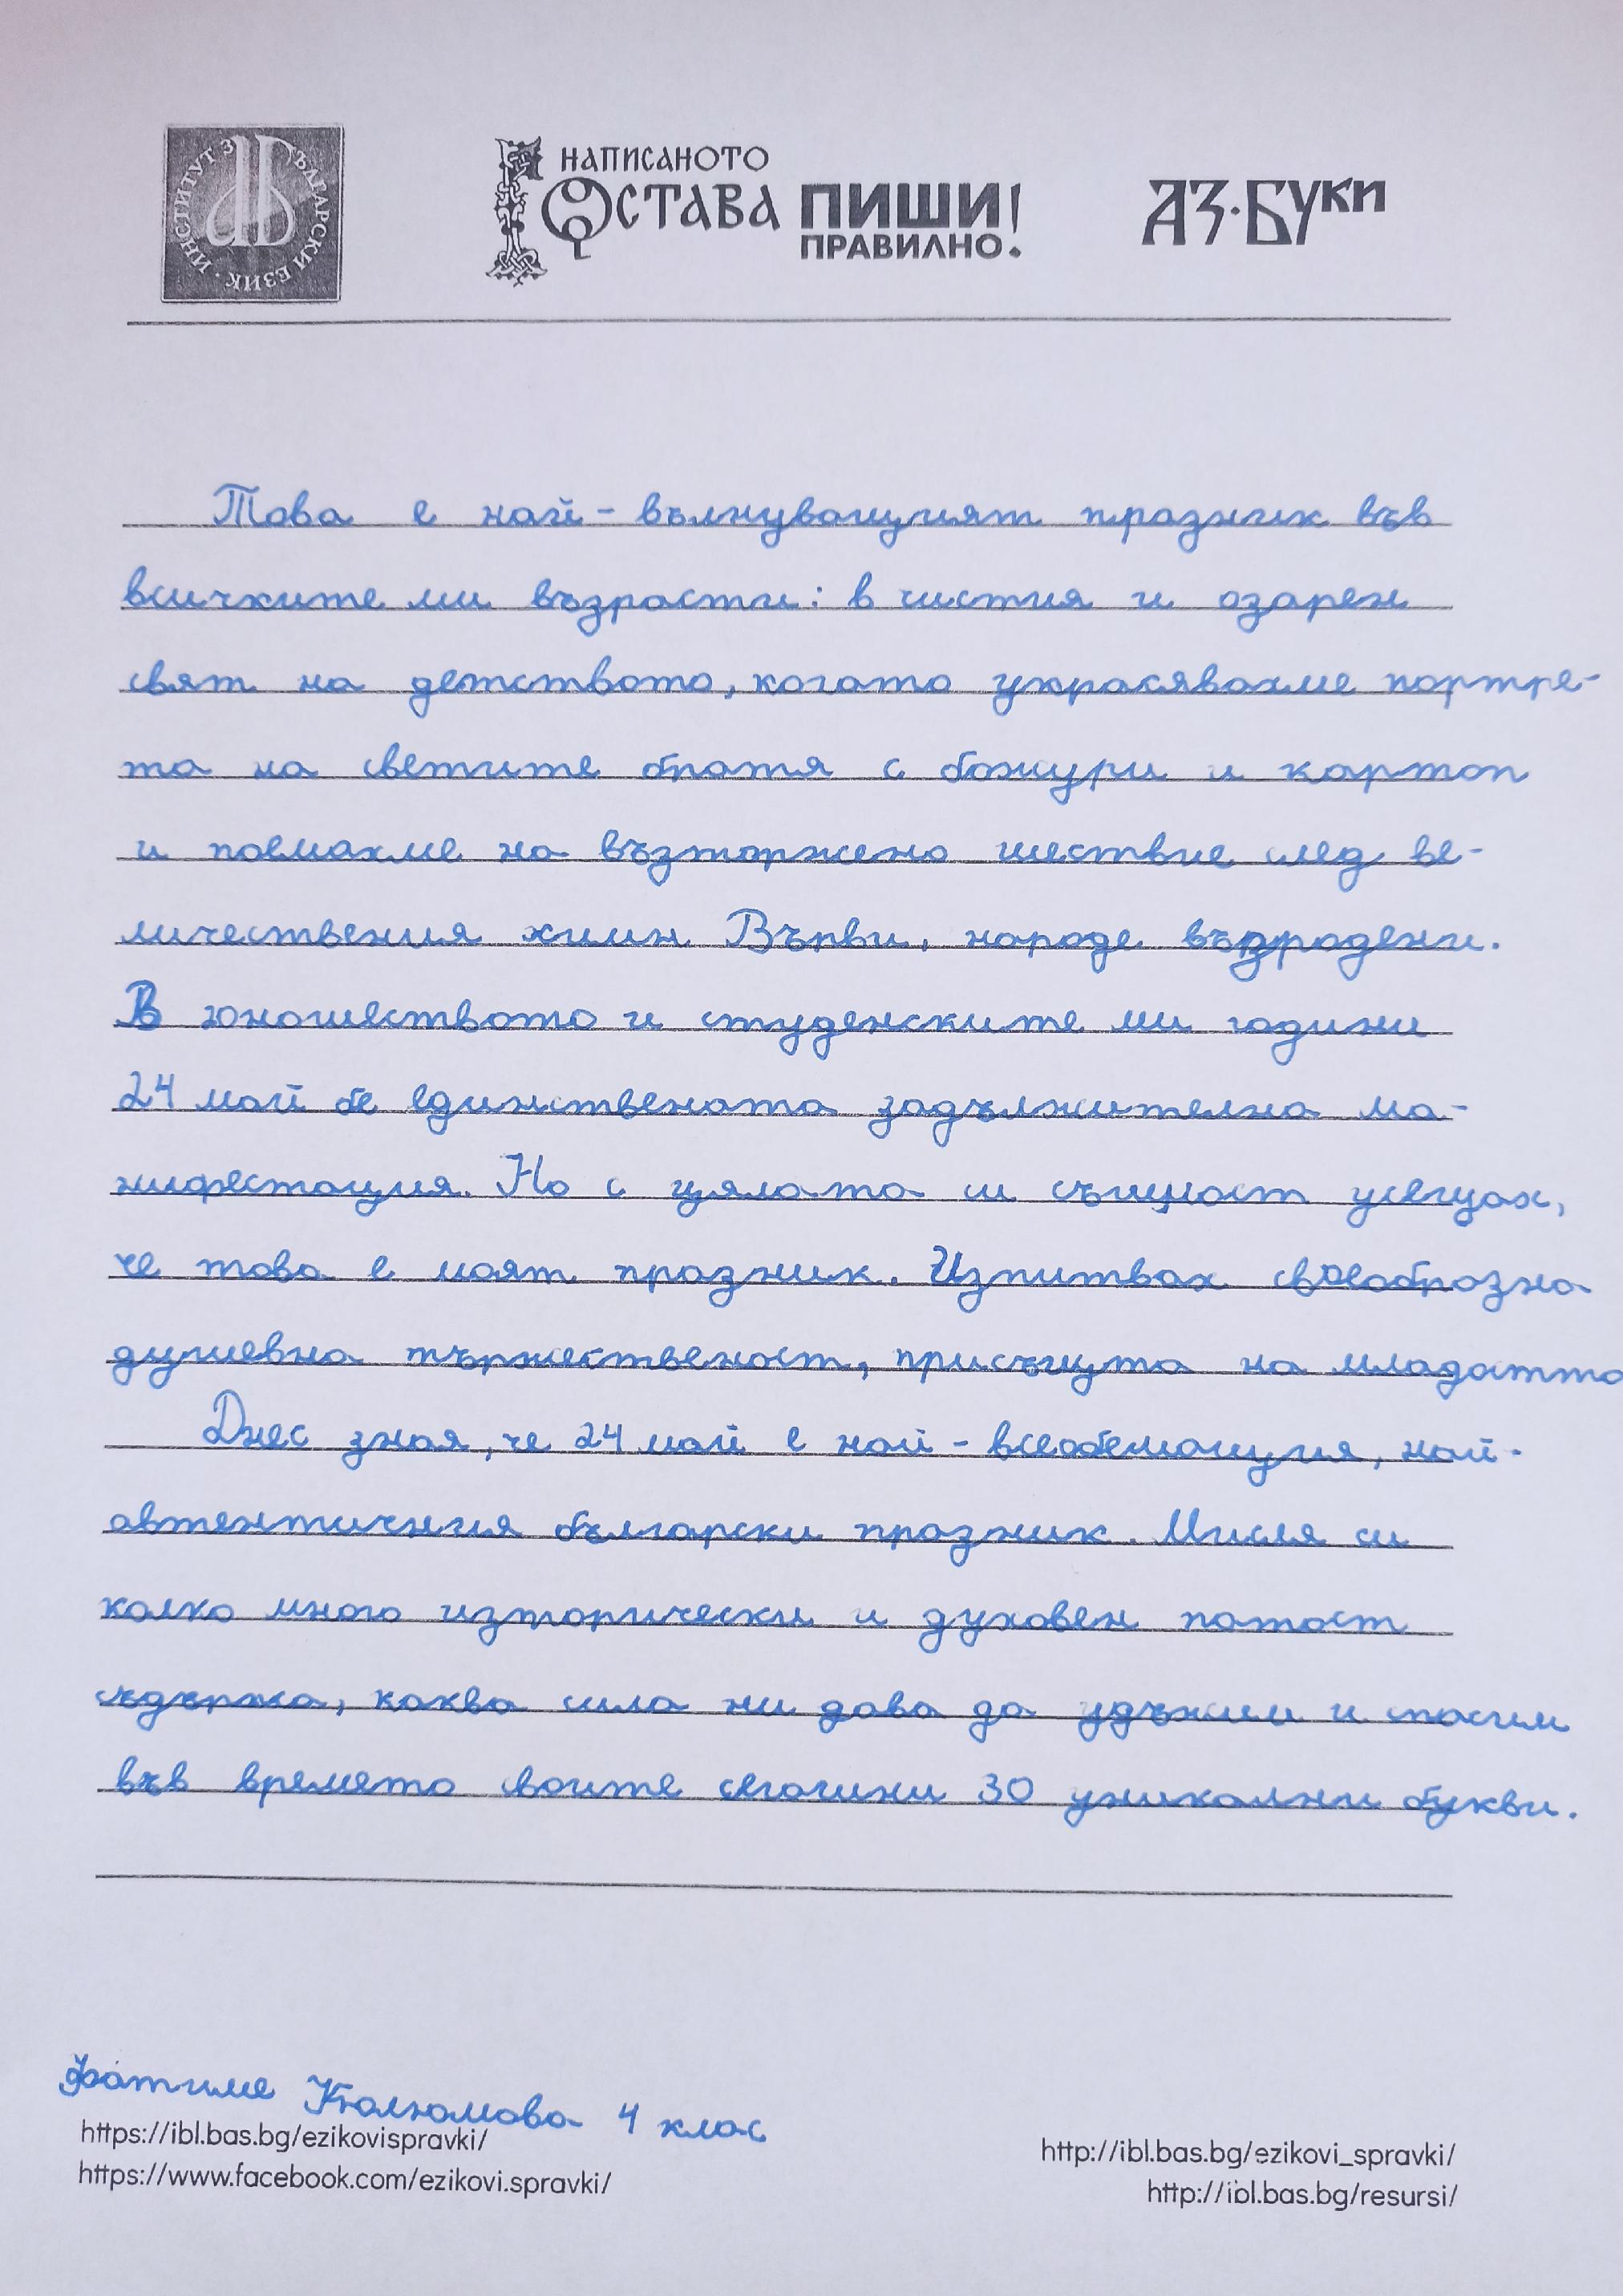 ИНСТИТУТ ЗА БЪЛГАРСКИ ЕЗИК
НАПИСАНОТО
ОСТАВА ПИШИ!
ПРАВИЛНО.
АЗ·БУКИ
Това е най-вълнуващият празник във
всичките ми възрасти: в чистия и озарен
свят на детството, когато украсявахме портре-
та на светите братя с божури и картоп
и поемахме на възторжено шествие след ве-
личествения химн Върви, народе възродени.
В юношеството и студенските ми години
24 май бе единствената задължителна ма-
нифестация. Но с цялата си същност усещах,
че това е моят празник. Изпитвах своеобразна
душевна тържественост, присъща на младостта
Днес зная, че 24 май е най-всеобемащия, най-
автентичния български празник. Мисля си
колко много изторически и духовен потост
съдържа, каква сила ни дава да удържим и спасим
във времето своите сегашни 30 уникални букви.
Фатиме Кюлюмова 4 клас
https://ibl.bas.bg/ezikovispravki/
https://www.facebook.com/ezikovi.spravki/
http://ibl.bas.bg/ezikovi_spravki/
http://ibl.bas.bg/resursi/